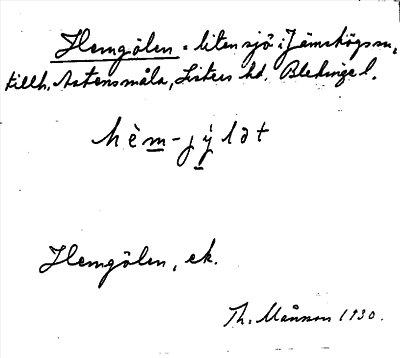 Hemgölen = liten sjö i Jämshögs sn,
tillh. Astensmåla, Listers hd. Blekinge l.
hèm-jýlət
Hemgölen, ek.
Th. Månsson 1930.